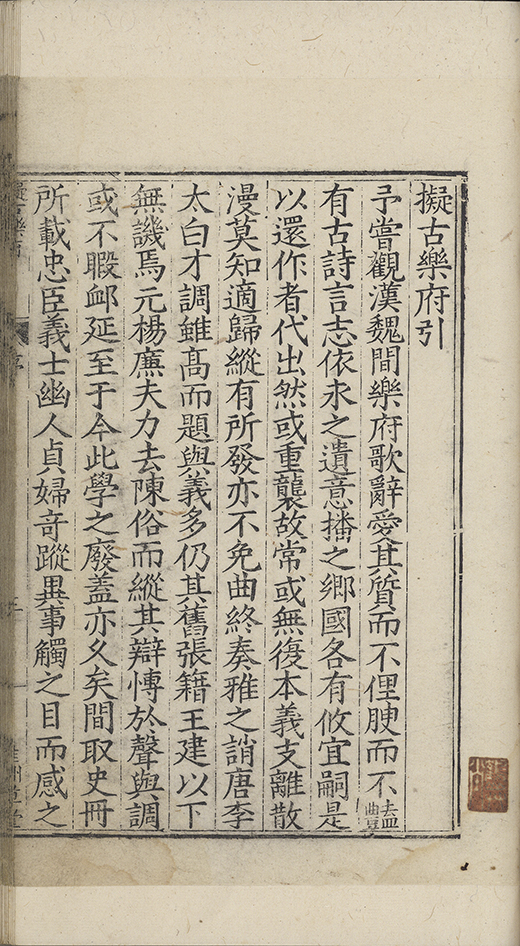 擬古樂府引
予嘗觀漢魏間樂府歌辭愛其質而不俚腴而不豔
有古詩言志依永之遺意播之鄉國各有攸宜嗣是
以還作者代出然或重襲故常或無復本義支離散
漫莫知適歸縱有所發亦不免曲終奏雅之誚唐李
太白才調雖高而題與義多仍其舊張籍王建以下
無譏焉元楊廉夫力去陳俗而縱其辯愽於聲與調
或不暇䘏延至于今此學之廢盖亦久矣間取史冊
所載忠臣義士幽人貞婦竒蹤異事觸之目而感之